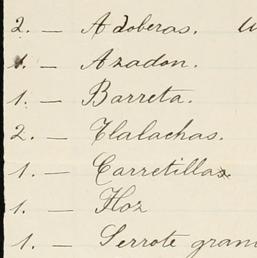 2. — Adoberas.
1. — Azadon.
1. — Barreta.
2. — Tlalachas.
1. — Carretilla
1. — Hoz
1. — Serrote gran